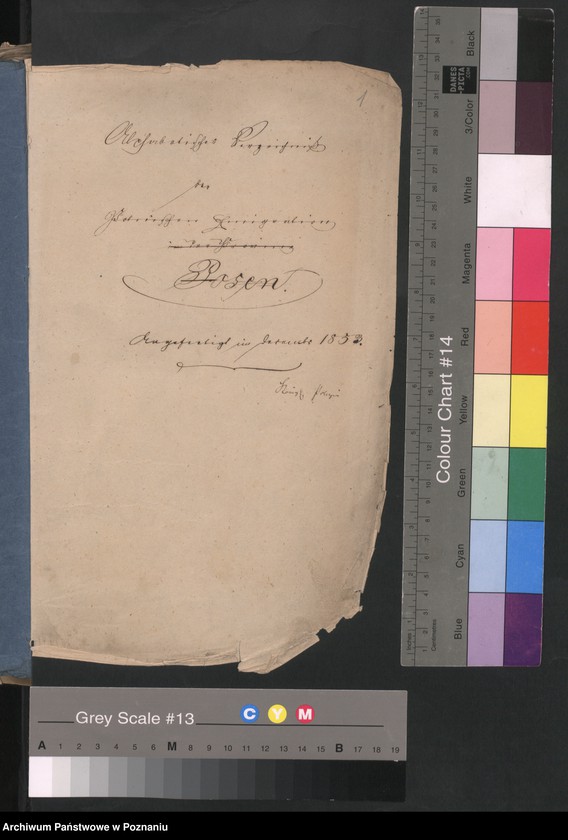 1
Alphabetisches Verzeichniß
der
Polnischen Emigration
der Provinz
Posen.
Angefertigt im Decembr 1853.
Colour Chart #14
Black
3/Color
White
Magenta
Red
Yellow
Green
Cyan
Blue
DANES
-PICTA
.COM
Inches
Centimetres
Grey Scale #13
C Y M
A 1 2 3 4 5 6 M 8 9 10 11 12 13 14 15 B 17 18 19
Archiwum Państwowe w Poznaniu